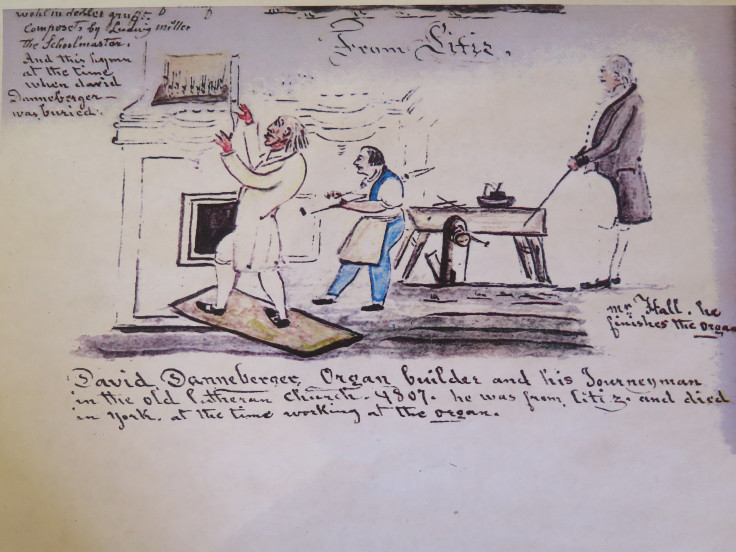 wohl in deiler gruft
Composet, by Ludwig Miller
the Schoolmaster.
And this hymn
at the time
when david
Danneberger
was buried.
From Litiz.
mr. Hall. he
finishes the organ
David Danneberger, Organ builder and his Journeyman
in the old Lutheran Church. 1807. he was from Litiz. and died
in York. at the time working at the organ.